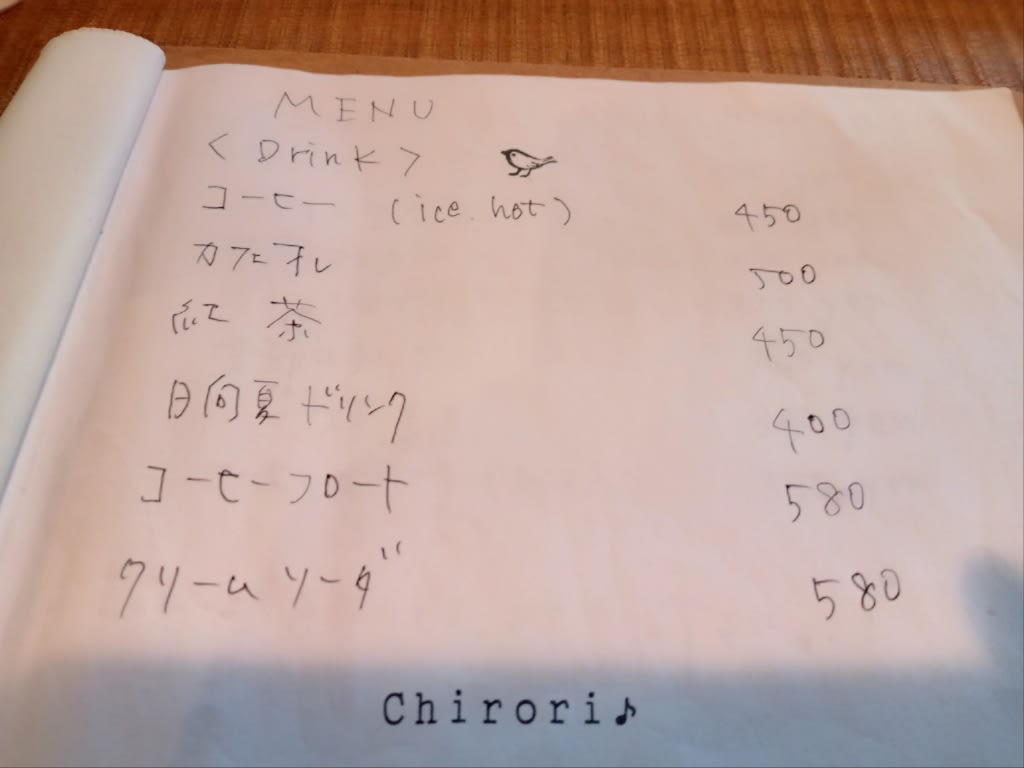 MENU
< Drink >
コーヒー (ice. hot) 450
カフェオレ 500
紅茶 450
日向夏ドリンク 400
コーヒーフロート 580
クリームソーダ 580
Chirori♪